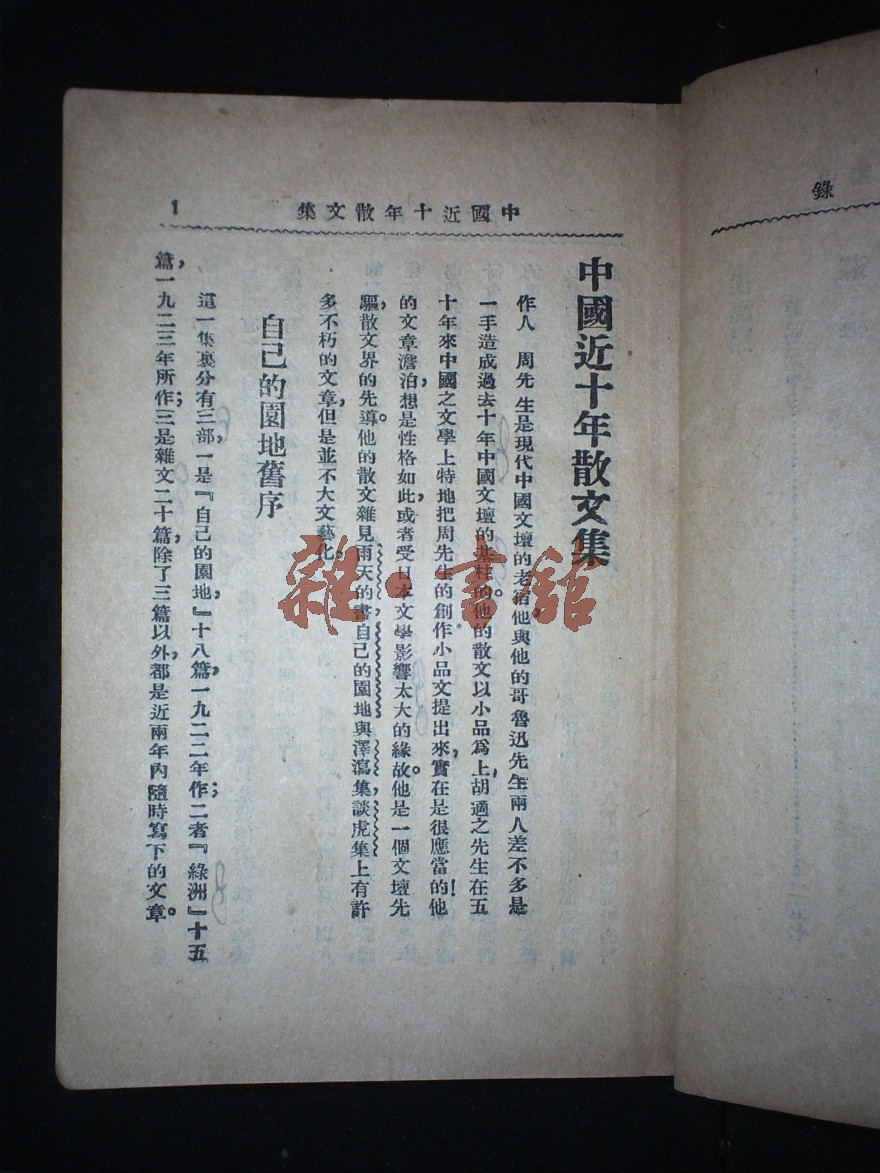 錄
中國近十年散文集
1
中國近十年散文集
作人　周先生是現代中國文壇的老宿，他與他的哥魯迅先生兩人差不多是
一手造成過去十年中國文壇的基柱的。他的散文以小品爲上，胡適之先生在五
十年來中國之文學上特地把周先生的創作小品文提出來，實在是很應當的！他
的文章澹泊，想是性格如此，或者受日本文學影響太大的緣故。他是一個文壇先
驅，散文界的先導。他的散文雜見雨天的書自己的園地與澤瀉集談虎集上有許
多不朽的文章，但是並不大文藝化。
自己的園地舊序
這一集裏分有三部，一是『自己的園地，』十八篇，一九二二年作；二者『綠洲』十五
篇，一九二三年所作；三是雜文二十篇，除了三篇以外，都是近兩年內隨時寫下的文章。
雜·書館